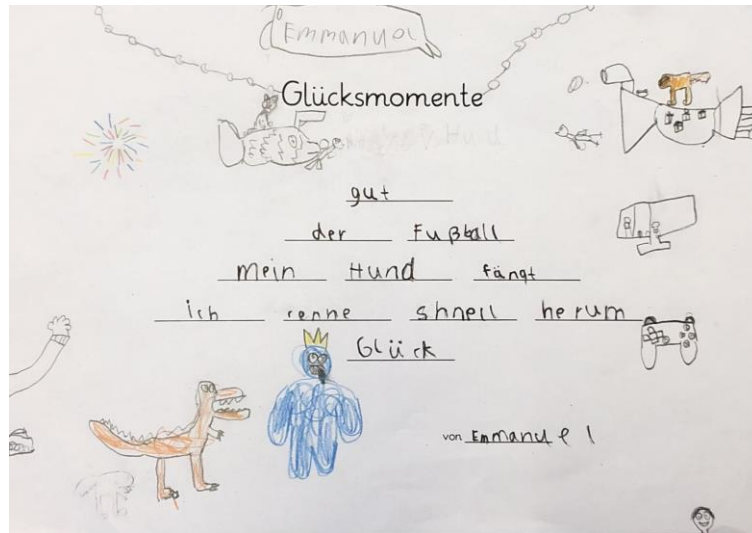 Emmanuel
Glücksmomente
gut
der Fußball
mein Hund fängt
ich renne shnell herum
Glück
von Emmanuel